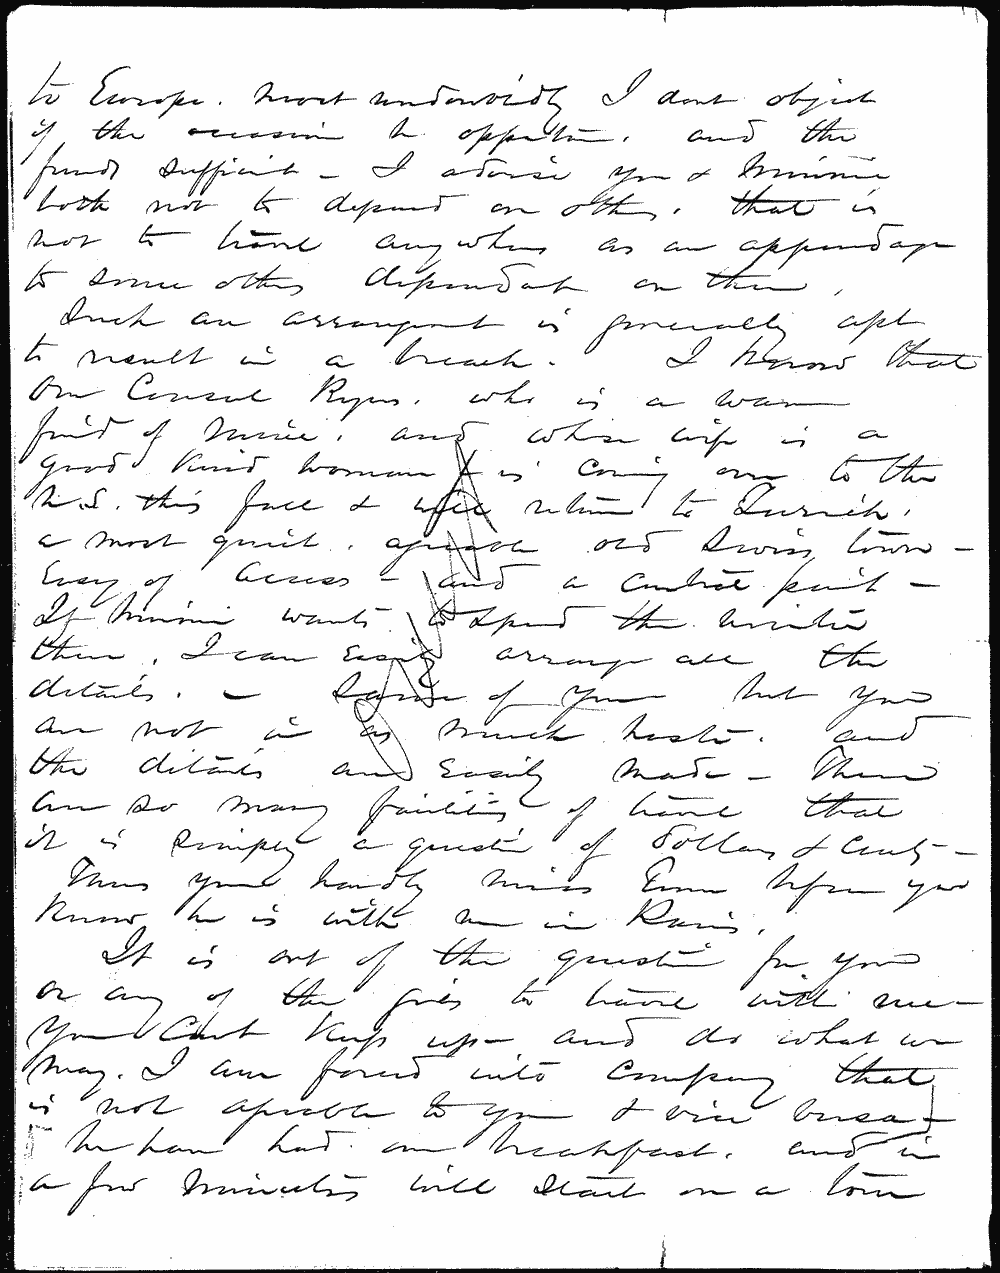 to Europe. Most undoubtedly I dont object
if the occasion be opportune, and the
funds sufficient - I advise you & Minnie
both not to depend on others. that is
not to travel anywhere as an appendage
to some others dependent on them,
Such an arrangement is generally apt
to result in a breach. I know that
Our Consul Byers, who is a warm
friend of Minnie, and whose wife is a
good kind woman is coming over to the
U.S. this fall & will return to Zurich,
a most quiet, agreeable old Swiss town -
Easy of access - and a central point -
If Minnie wants to spend the winter
there, I can easily arrange all the
details. - Some of you but you
are not in as much haste. and
the details are easily made - There
are so many facilities of travel that
it is simply a question of dollars & cents -
Thus you'd hardly miss before you
know he is with me in Paris.
It is out of the question for you
or any of the girls to travel with me -
You Cant keep up - and do what we
may. I am forced into company that
is not agreeable to you & vice versa -
We have had our breakfast. and in
a few minutes will start on a tour